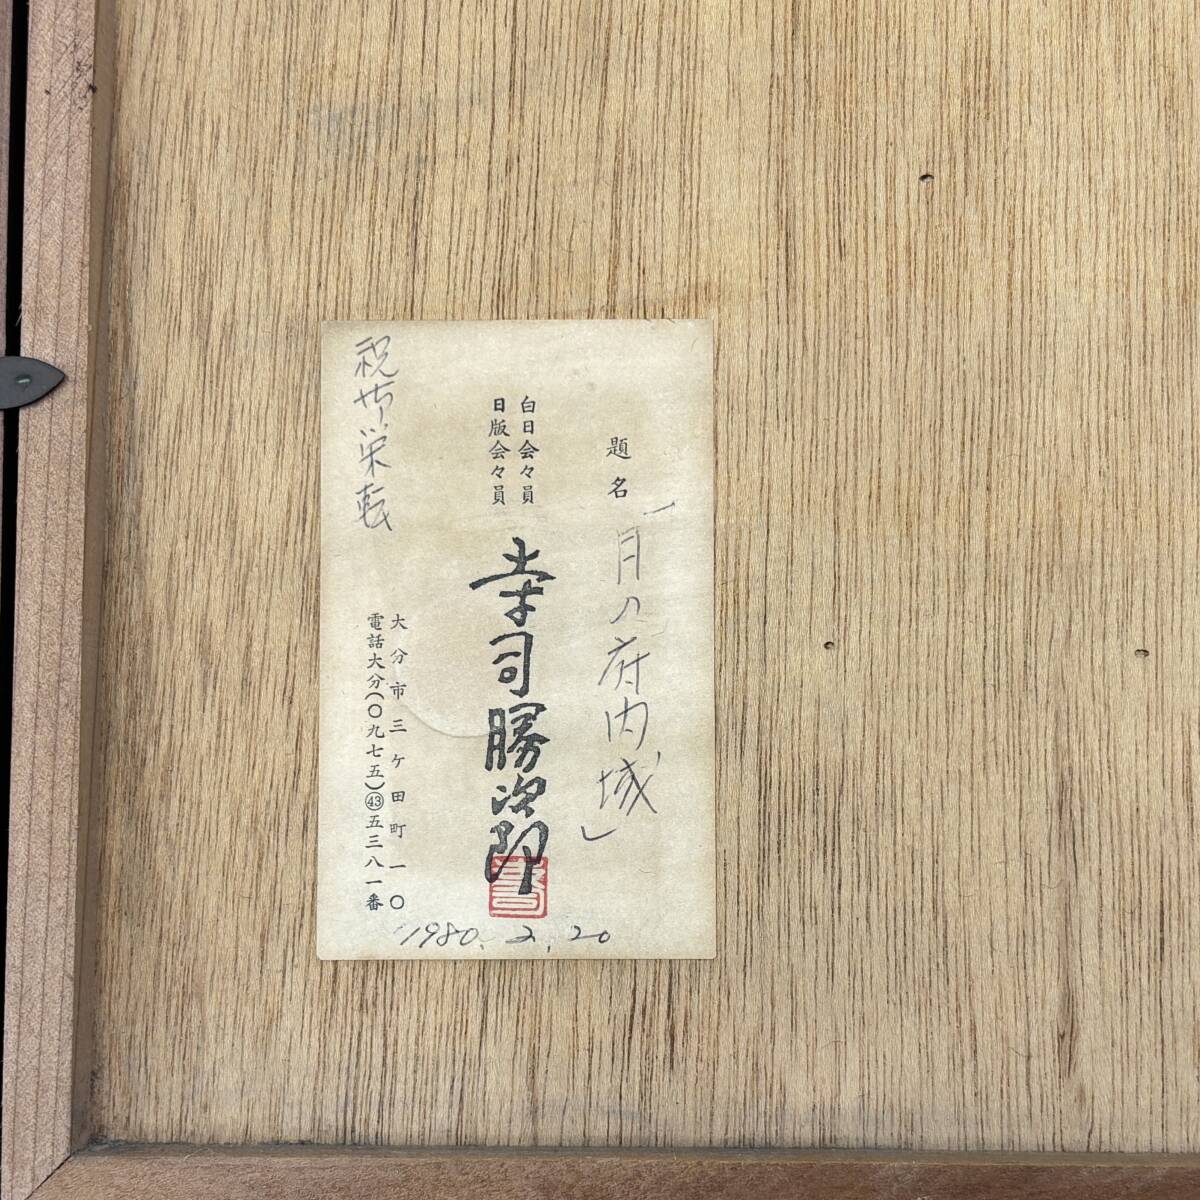 題名「月の府内城」
白日会々員
日版会々員
幸司勝次郎
大分市三ヶ田町一〇
電話大分(〇九七五)㊸五三八一番
祝御栄転
1980.2.20